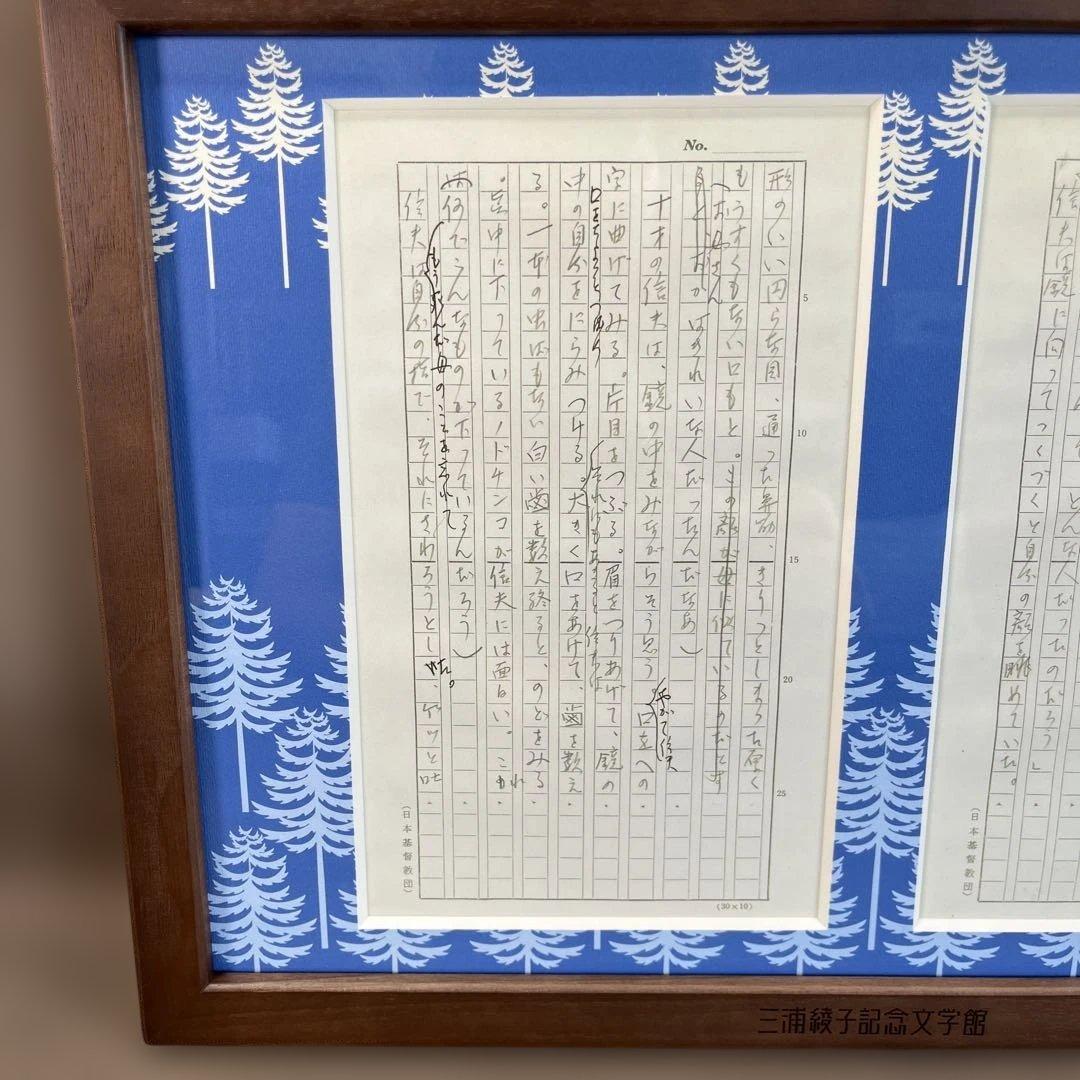 どんな人だったのだろう」
信夫は鏡に向ってつくづくと自分の顔を眺めていた。
No.
形のいい円らな目、通った鼻筋、きりっとしまった厚く
もうすくもない口もと。この顔が母に似ているのだとす
(おかあさん
はきれいな人だったんだなあ)
十才の信夫は、鏡の中をみながらそう思う 口をへの
やがて信夫
字に曲げてみる。片目をつぶる。眉をつりあげて、鏡の
中の自分をにらみつける。大きく口をあけて、歯を数え
る。一本の虫ばもない白い歯を数え終ると、のどをみる
。真中に下っているノドチンコが信夫には面白い。これ
(何でこんなものが下っているんだろう)
母のことを忘れて
信夫は自分の指で、それにさわろうとした。ゲッと吐
5
10
15
20
25
(30×10)
(日本基督教団)
(日本基督教団)
三浦綾子記念文学館